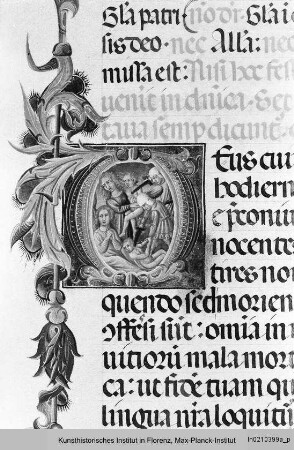 Gl'a patri
sisdeo · nec Alla:
missa est: Nisi hoc fes
uenit in dnica
taua semp dicunt
Deus cui
hodiern
nocentes
tires no
quendo sed morien
omia in
uitiorū mala mor
ca: ut fidē tuam q
lingua nr̄a loquit
Kunsthistorisches Institut in Florenz, Max-Planck-Institut
ln0210399a_p